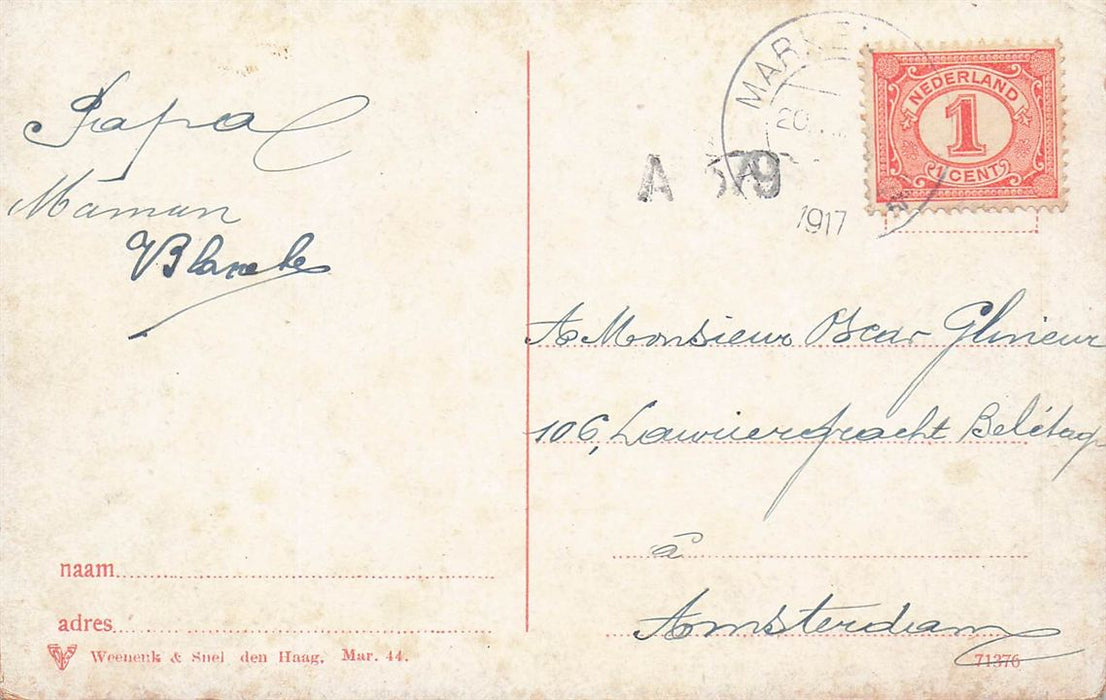 Papa
Maman
Blanche
naam
adres
Weenenk & Snel den Haag, Mar. 44.
MARKE
20
1917
A 379
NEDERLAND
1
1 CENT
A Monsieur Oscar Glineur
106, Lauriergracht Belétage
à
Amsterdam
71376